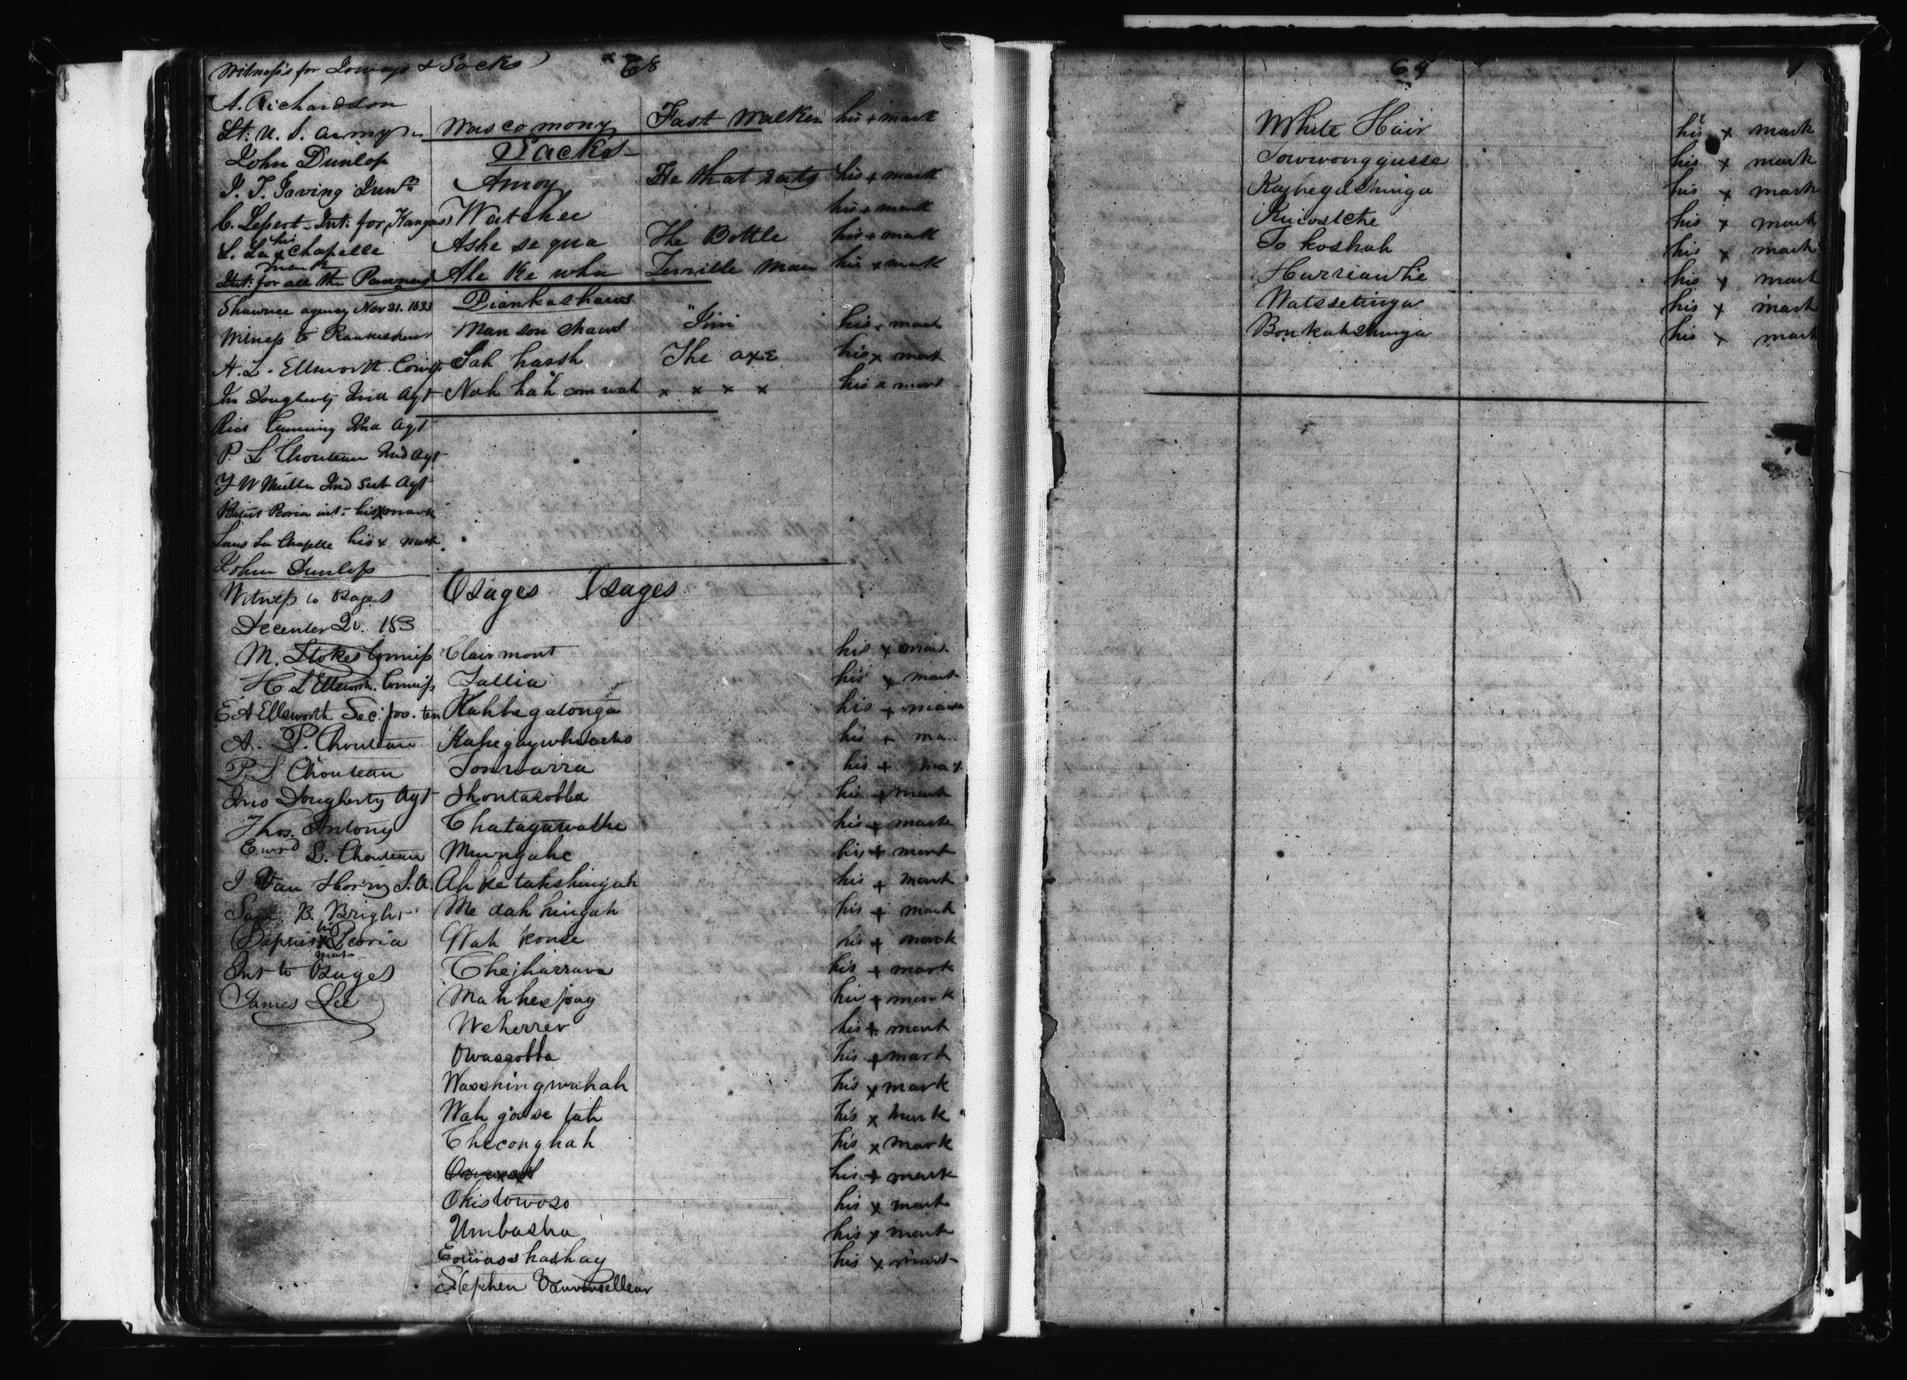 Witness for Ioways & Sacks 68
A. Richardson
Lt. U. S. army Wascomony Fast Walker his + mark
John Dunlop Sacks
J. T. Irving Junr. Amoy He that eats his + mark
C. Lepert - Int. for Kanzas Watchee his + mark
L. La his x mark Chapelle Ashe se qua The Bottle his + mark
Int. for all the Pawnees Ale Ke wha Terrible Man his x mark
Shawnee agency Nov 21. 1833 Piankashaws
Witness to Piankashaws Man son shaws "Jim his x mark
H. L. Ellsworth Comr. Sah hassh The axe his x mark
Jno Dougherty Ind Agt Nah hah com wah x x x x his x mark
Rich Cumming Ind Agt
P. L Chouteau Ind Agt
Ind Sub Agt
Peoria int - his x mark
Louis La Chapelle his x mark
John Dunlop
Witness to Osages Osages Osages
December 20. 183
M. Stokes Comiss Clairmont his x mark
H L Ellsworth. Comiss Tallia his x mark
E A Ellsworth Sec. pro. tem Kahhegatonga his + mark
A. P. Chouteau his + ma
P. L Chouteau Tonwarra his + max
Jno Dougherty Agt Shontasobba his + mark
Thos. Antony Chatagawathe his + mark
Ewrd L. Chouteau Mungahe his + mark
J Van Horn S. A. Ah ke tahshingah his + mark
B. Bright Me dah hingah his + mark
Baptist his x mark Peoria Wah konse his + mark
Int to Osages Chejharrava his + mark
James Lee Mahhespay his + mark
Weherrer his + mark
Owassobba his + mark
Wasshingwahah his x mark
Wah gasse tah his x mark
Checonghah his x mark
his + mark
Okistowoso his x mark
Umbasha his x mark
Eouasshashay his x mark
Stephen
64
White Hair his x mark
Towwonggusse his x mark
Kahhegushinga his x mark
his x mark
To koshah his x mark
Hurriawhe his x mark
Watssetinga his x mark
Bonkahshinga his x mark